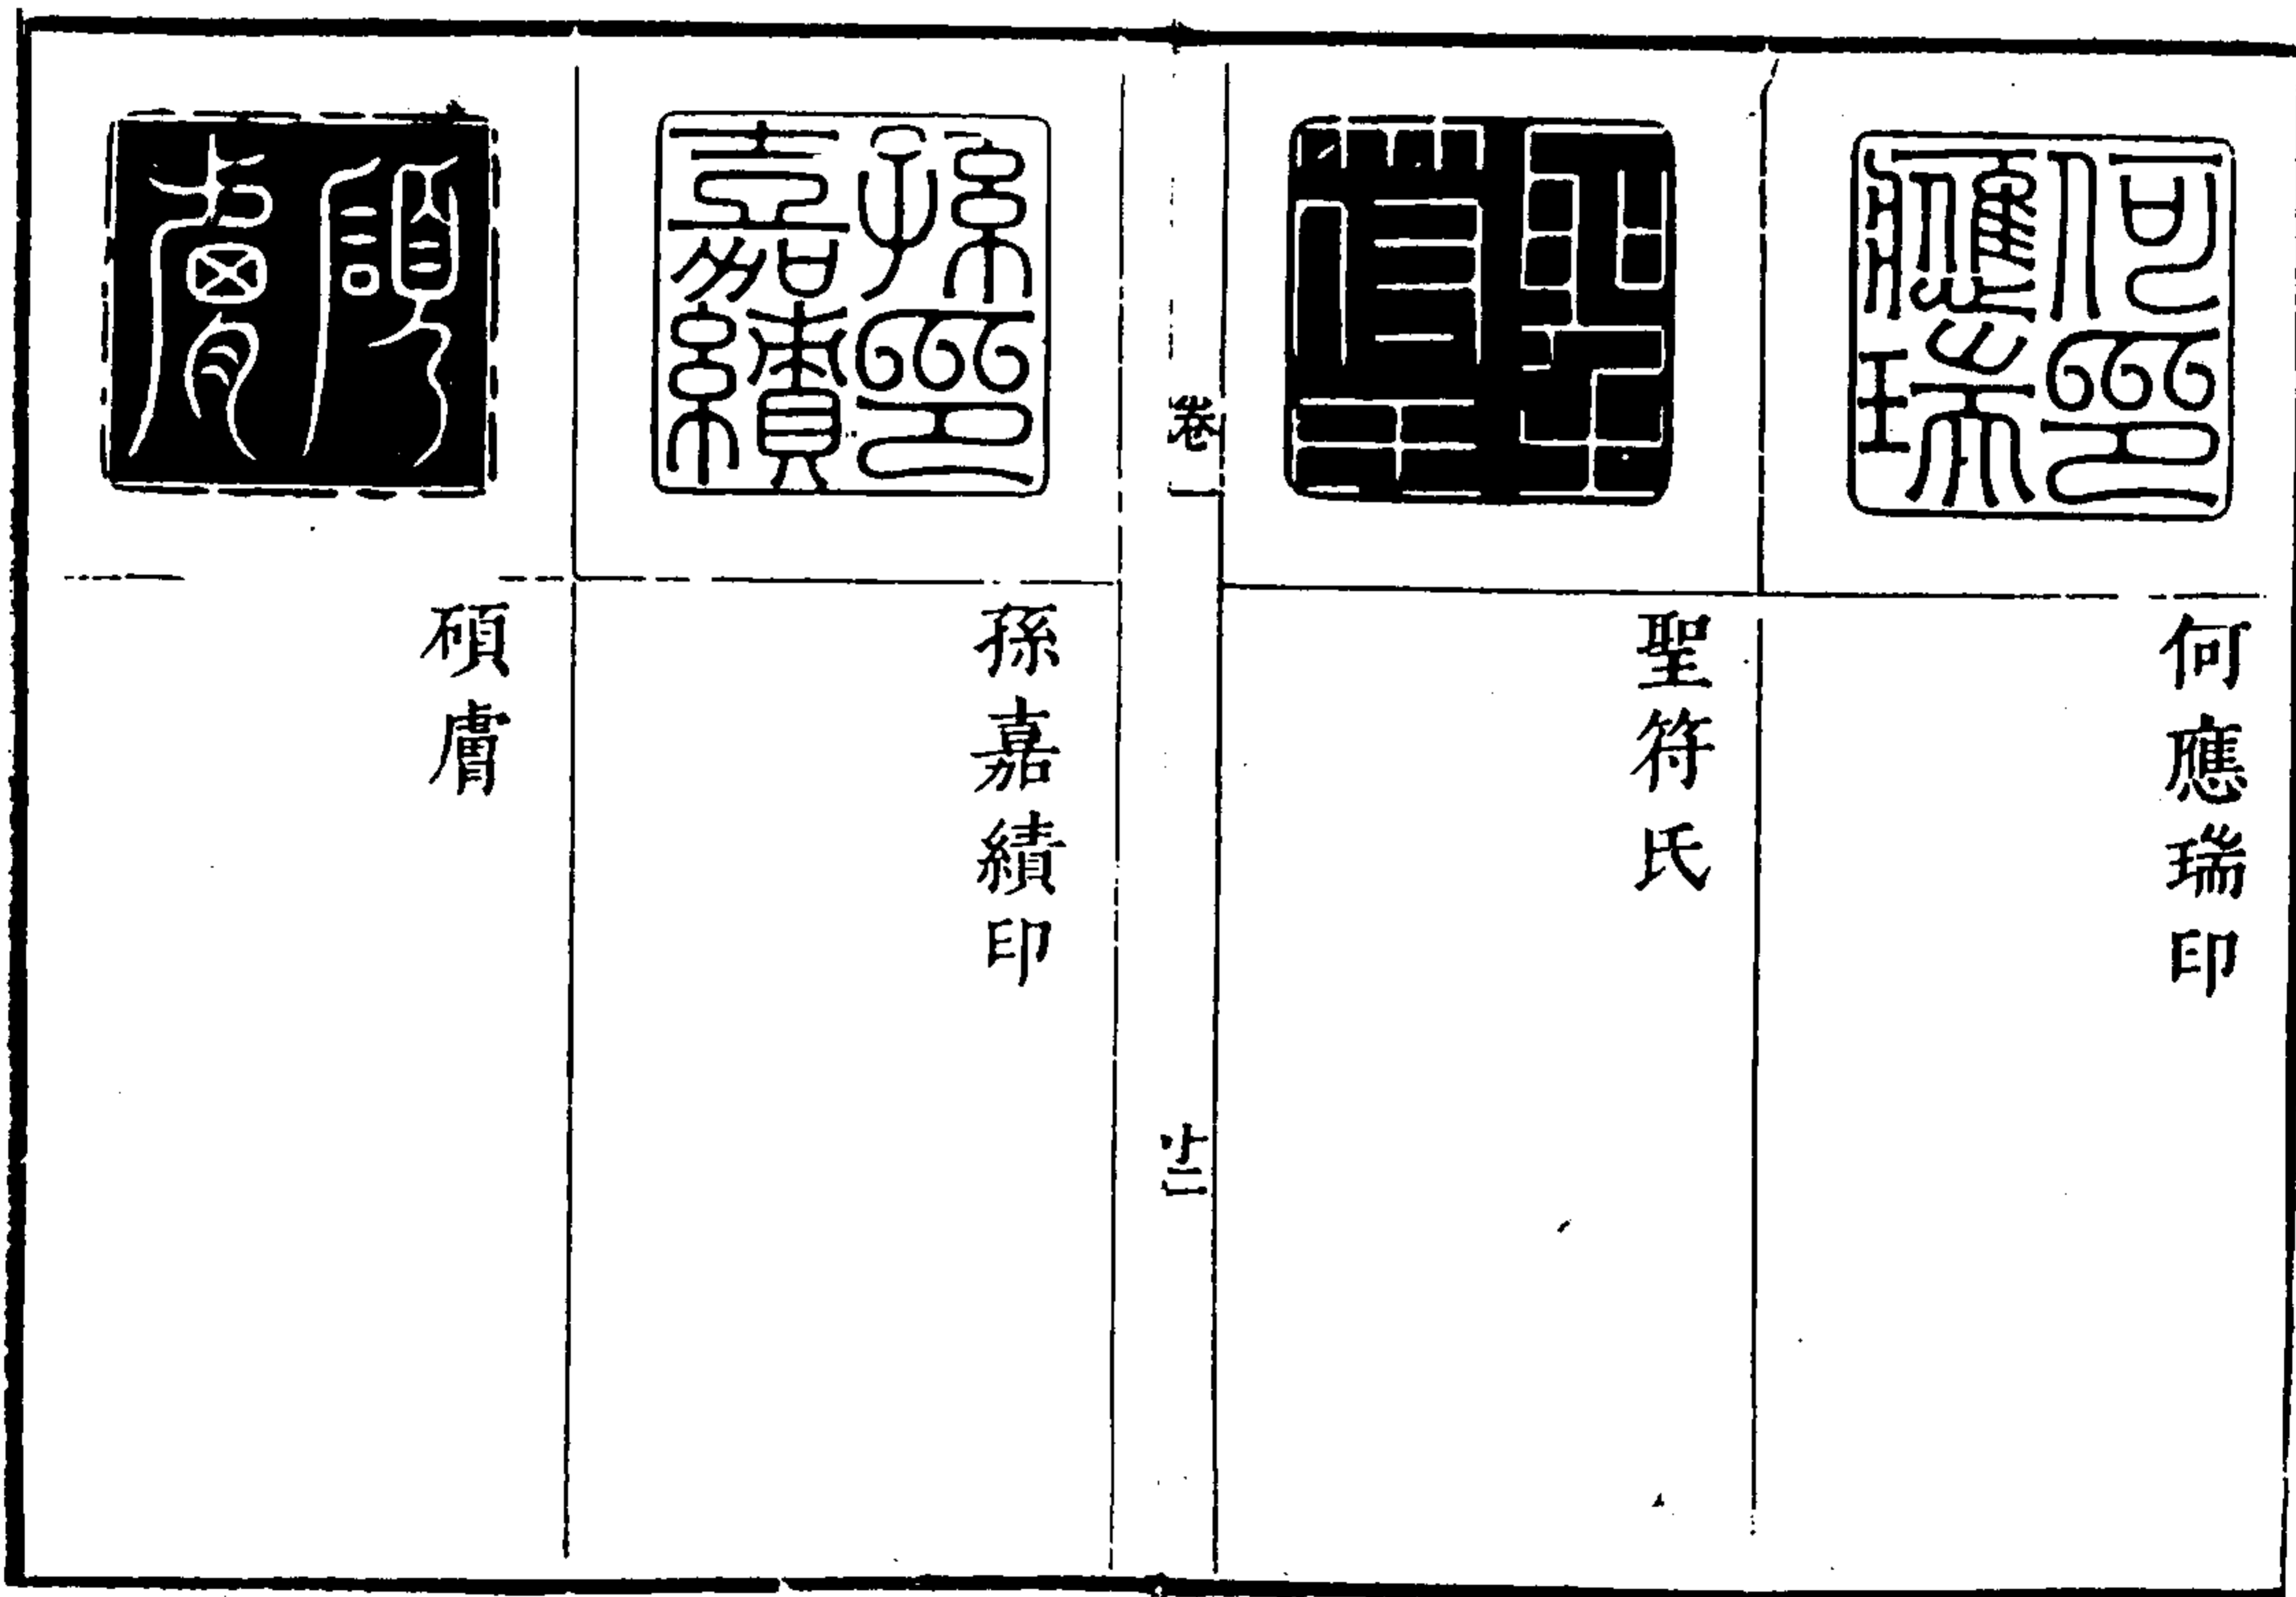 何應瑞印
何應瑞印
聖符氏
聖符氏
卷一
孫嘉績印
孫嘉績印
碩膚
碩膚